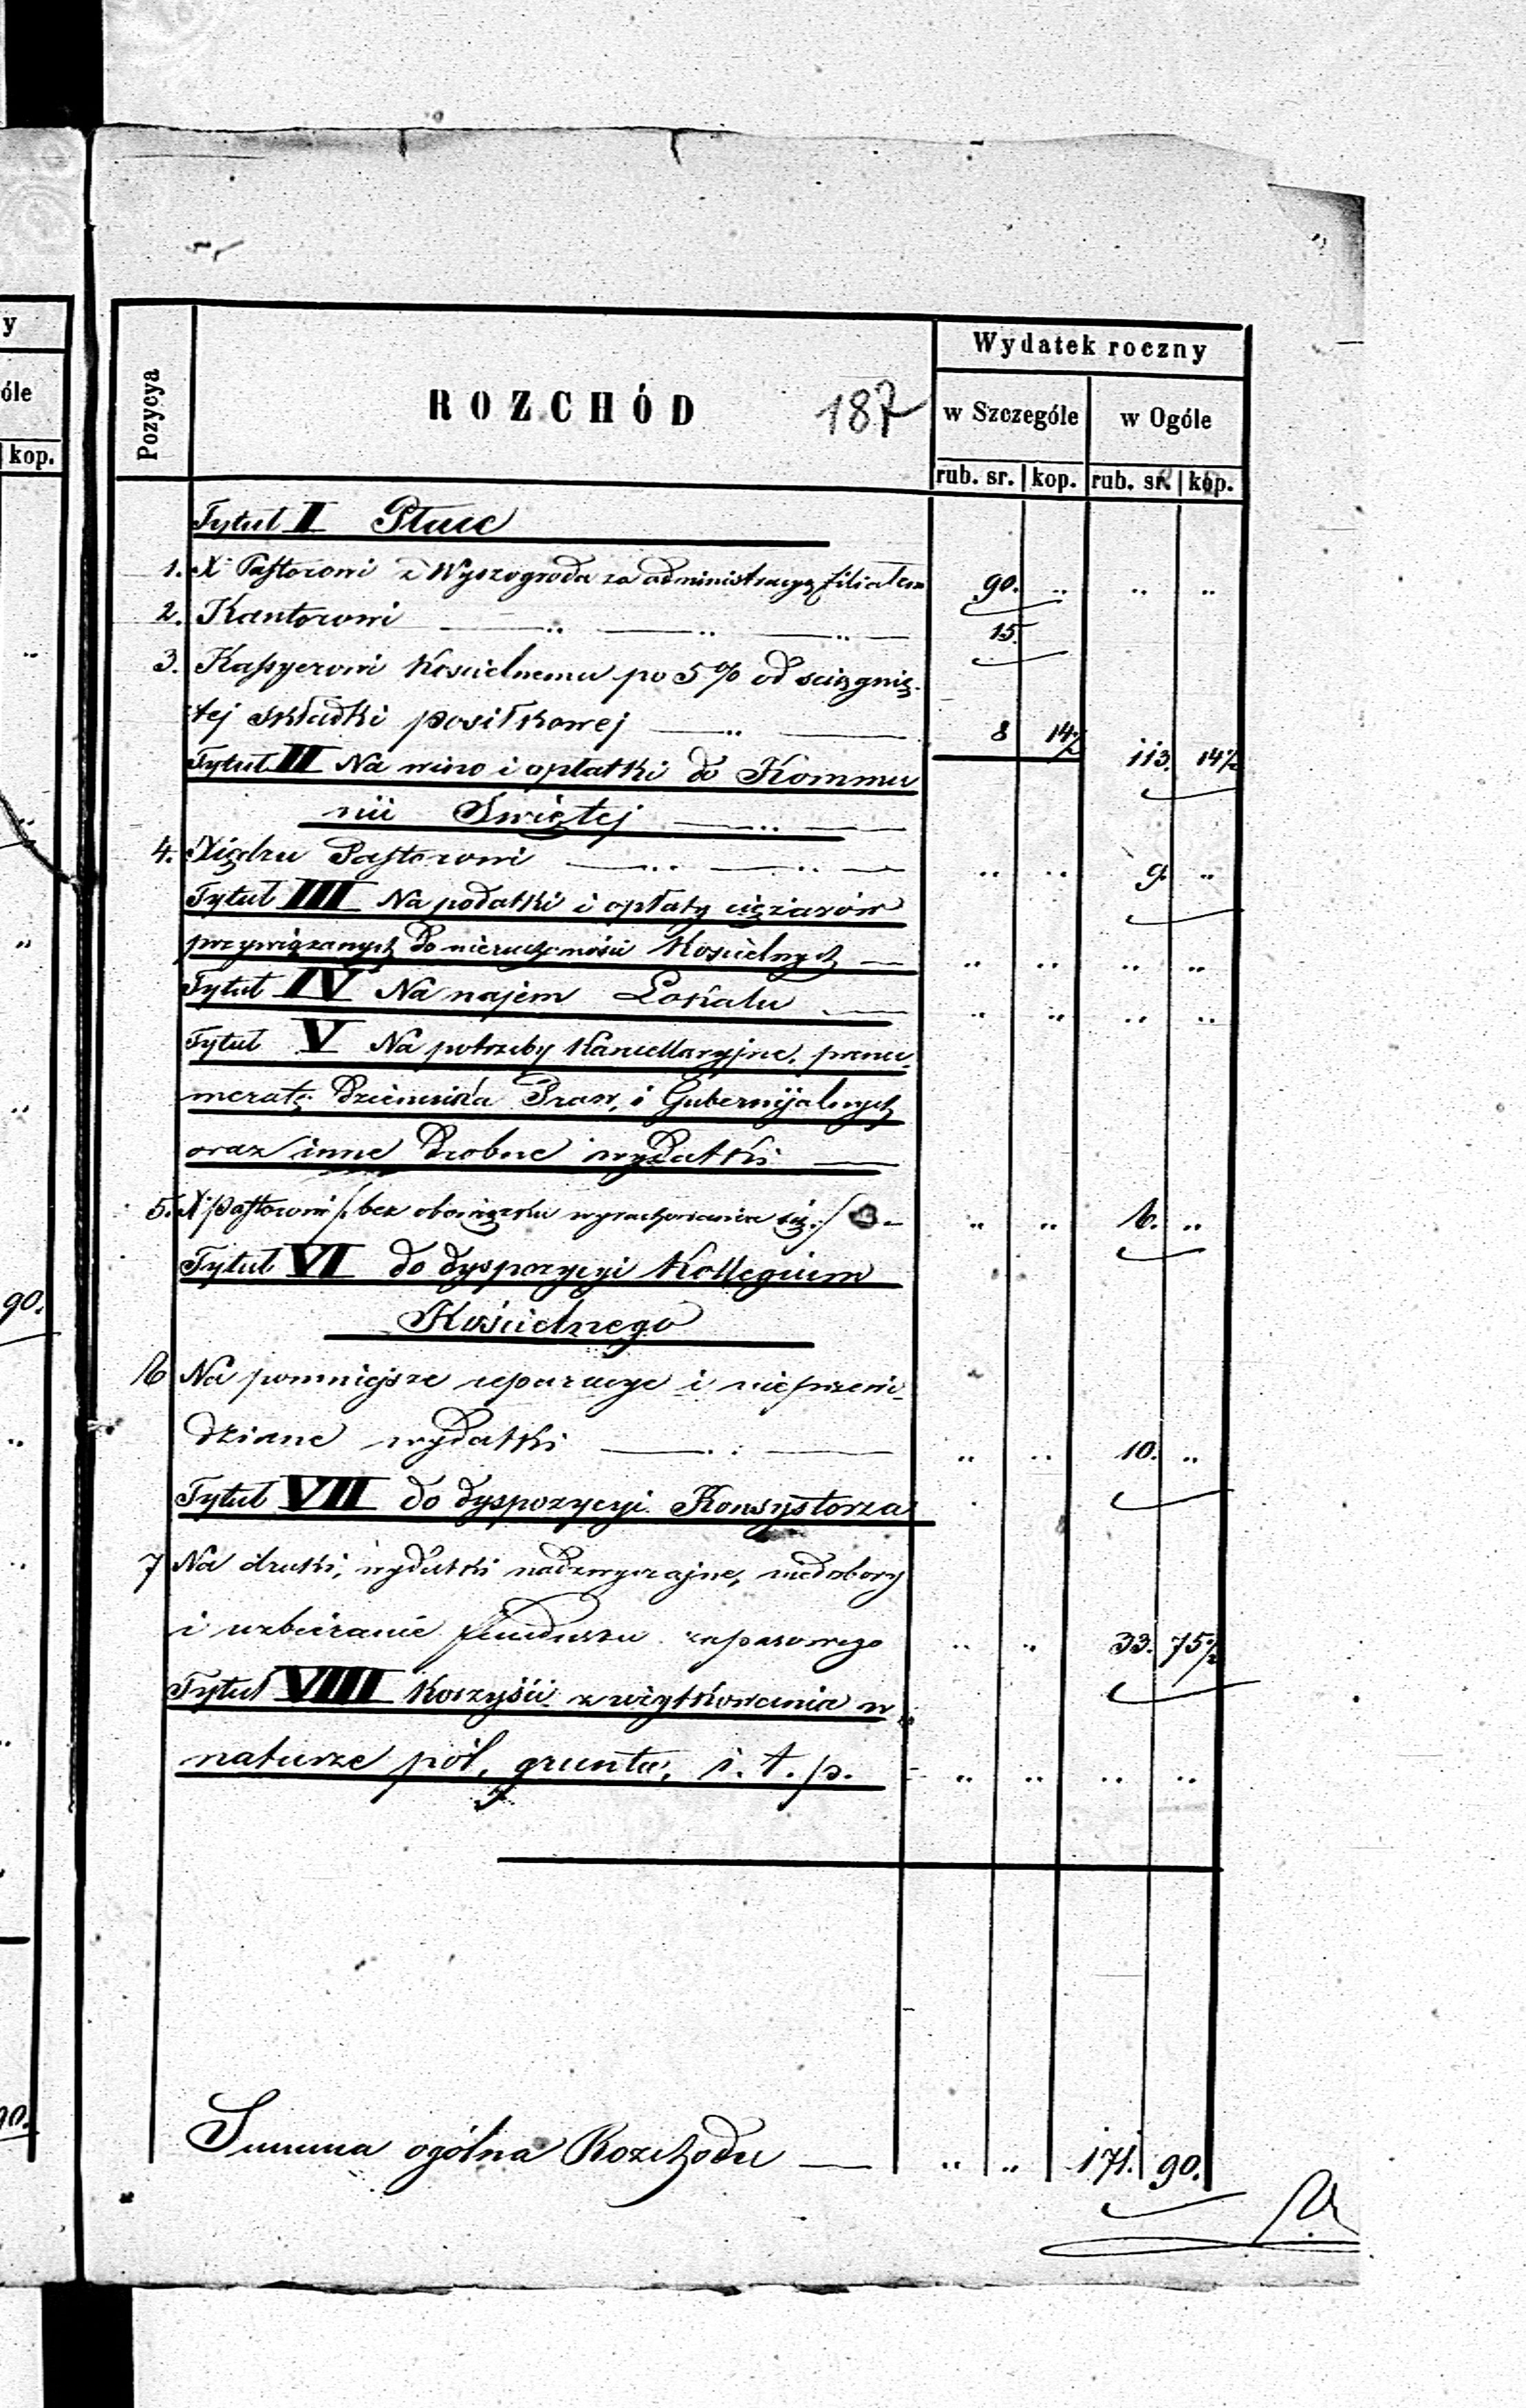 y
óle
kop.
90.
90.
Pozycya
ROZCHÓD
187
Wydatek roczny
w Szczególe
w Ogóle
rub. sr. | kop. | rub. sr. | kop.
Tytuł I Płace
1. X. Pastorowi z Wyszogroda za administracyą filiałem 90. .. .. ..
2. Kantorowi — .. — .. — .. — 15.
3. Kassyerowi Kościelnemu po 5% od ściągnię-
tej składki posiłkowej — .. — 8 14½ 113. 14½
Tytuł II Na wino i opłatki do Kommu
nii Świętej — .. —
4. Xiędzu Pastorowi — .. — .. — .. .. 9. ..
Tytuł III Na podatki i opłaty ciężarów
przywiązanych do nieruchomości Kościelnych — .. .. .. ..
Tytuł IV Na najem Lokalu — .. .. .. ..
Tytuł V Na potrzeby Kancellaryjne, prenu-
meratę Dziennika Praw, i Gubernijalnych
oraz inne drobne wydatki —
5. X. Pastorowi /: bez obowiązku wyrachowania się :/ — .. .. 6. ..
Tytuł VI do dyspozycyi Kollegium
Kościelnego
6 Na pomniejsze reparacye i nieprzewi-
dziane wydatki — .. — .. .. 10. ..
Tytuł VII do dyspozycyi Konsystorza
7 Na druki, wydatki nadzwyczajne, niedobory
i uzbieranie funduszu zapasowego .. .. 33. 75½
Tytuł VIII Korzyści z użytkowania w
naturze pól, gruntu, i. t. p. .. .. .. ..
Summa ogólna Rozchodu — .. .. 171. 90.